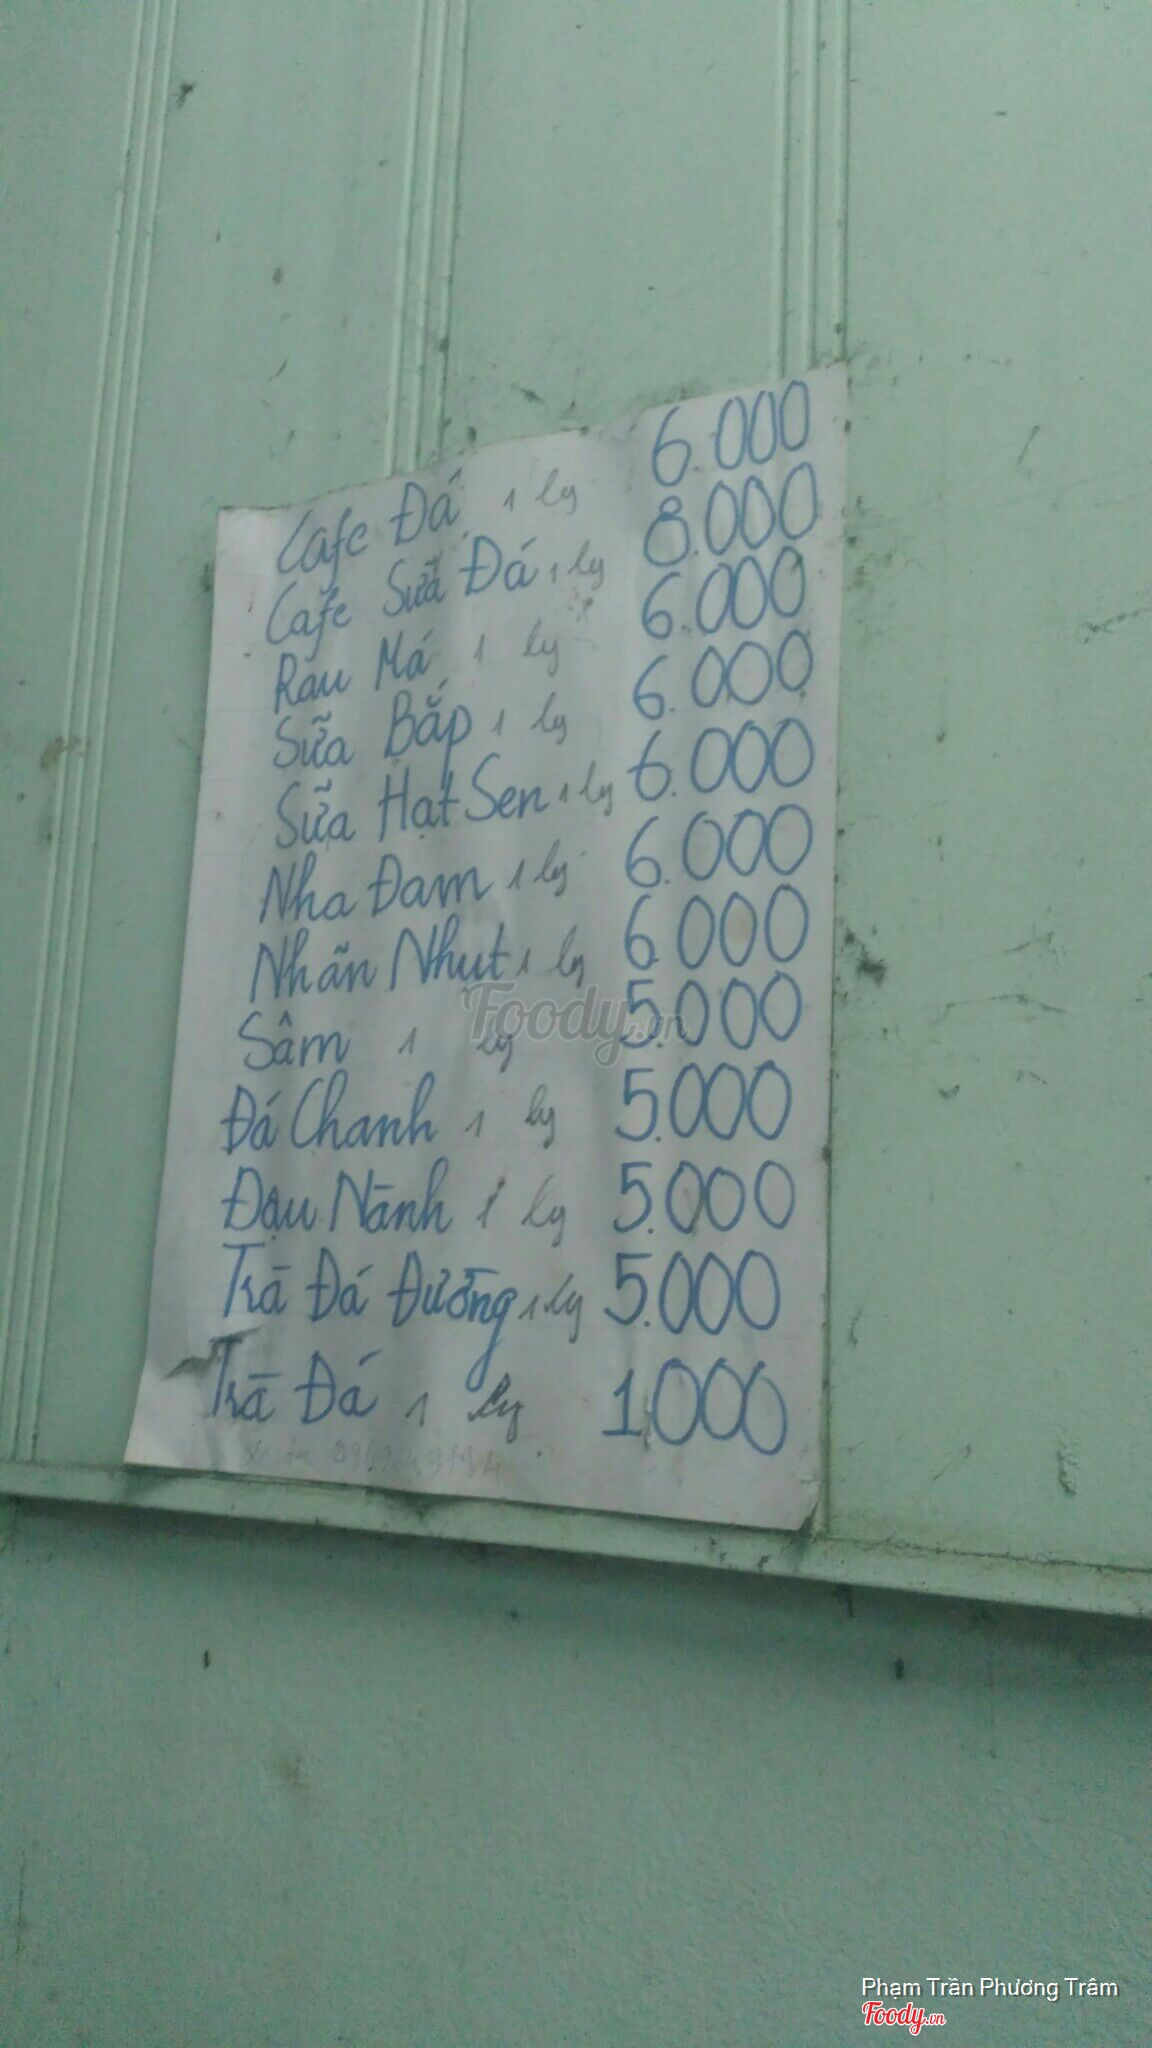 Cafe Đá 1 ly 6.000
Cafe Sữa Đá 1 ly 8.000
Rau Má 1 ly 6.000
Sữa Bắp 1 ly 6.000
Sữa Hạt Sen 1 ly 6.000
Nha Đam 1 ly 6.000
Nhãn Nhụt 1 ly 6.000
Sâm 1 ly 5.000
Đá Chanh 1 ly 5.000
Đậu Nành 1 ly 5.000
Trà Đá Đường 1 ly 5.000
Trà Đá 1 ly 1.000
Foody.vn
Phạm Trần Phương Trâm
Foody.vn